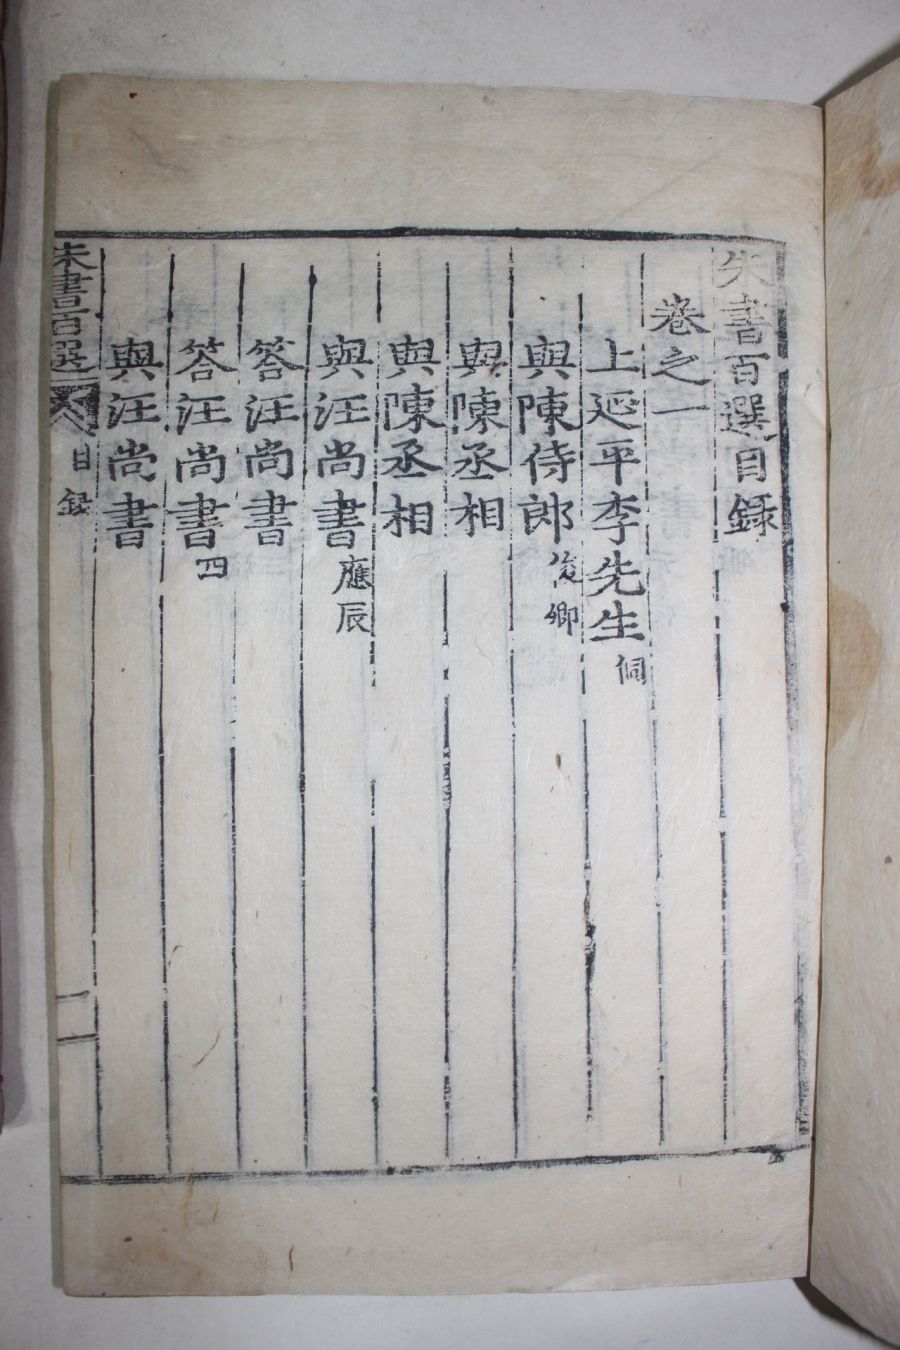 朱書百選目錄
卷之一
上延平李先生 侗
與陳侍郎 俊卿
與陳丞相
與陳丞相
與汪尚書 應辰
答汪尚書
答汪尚書 四
與汪尚書
朱書百選 目錄 一